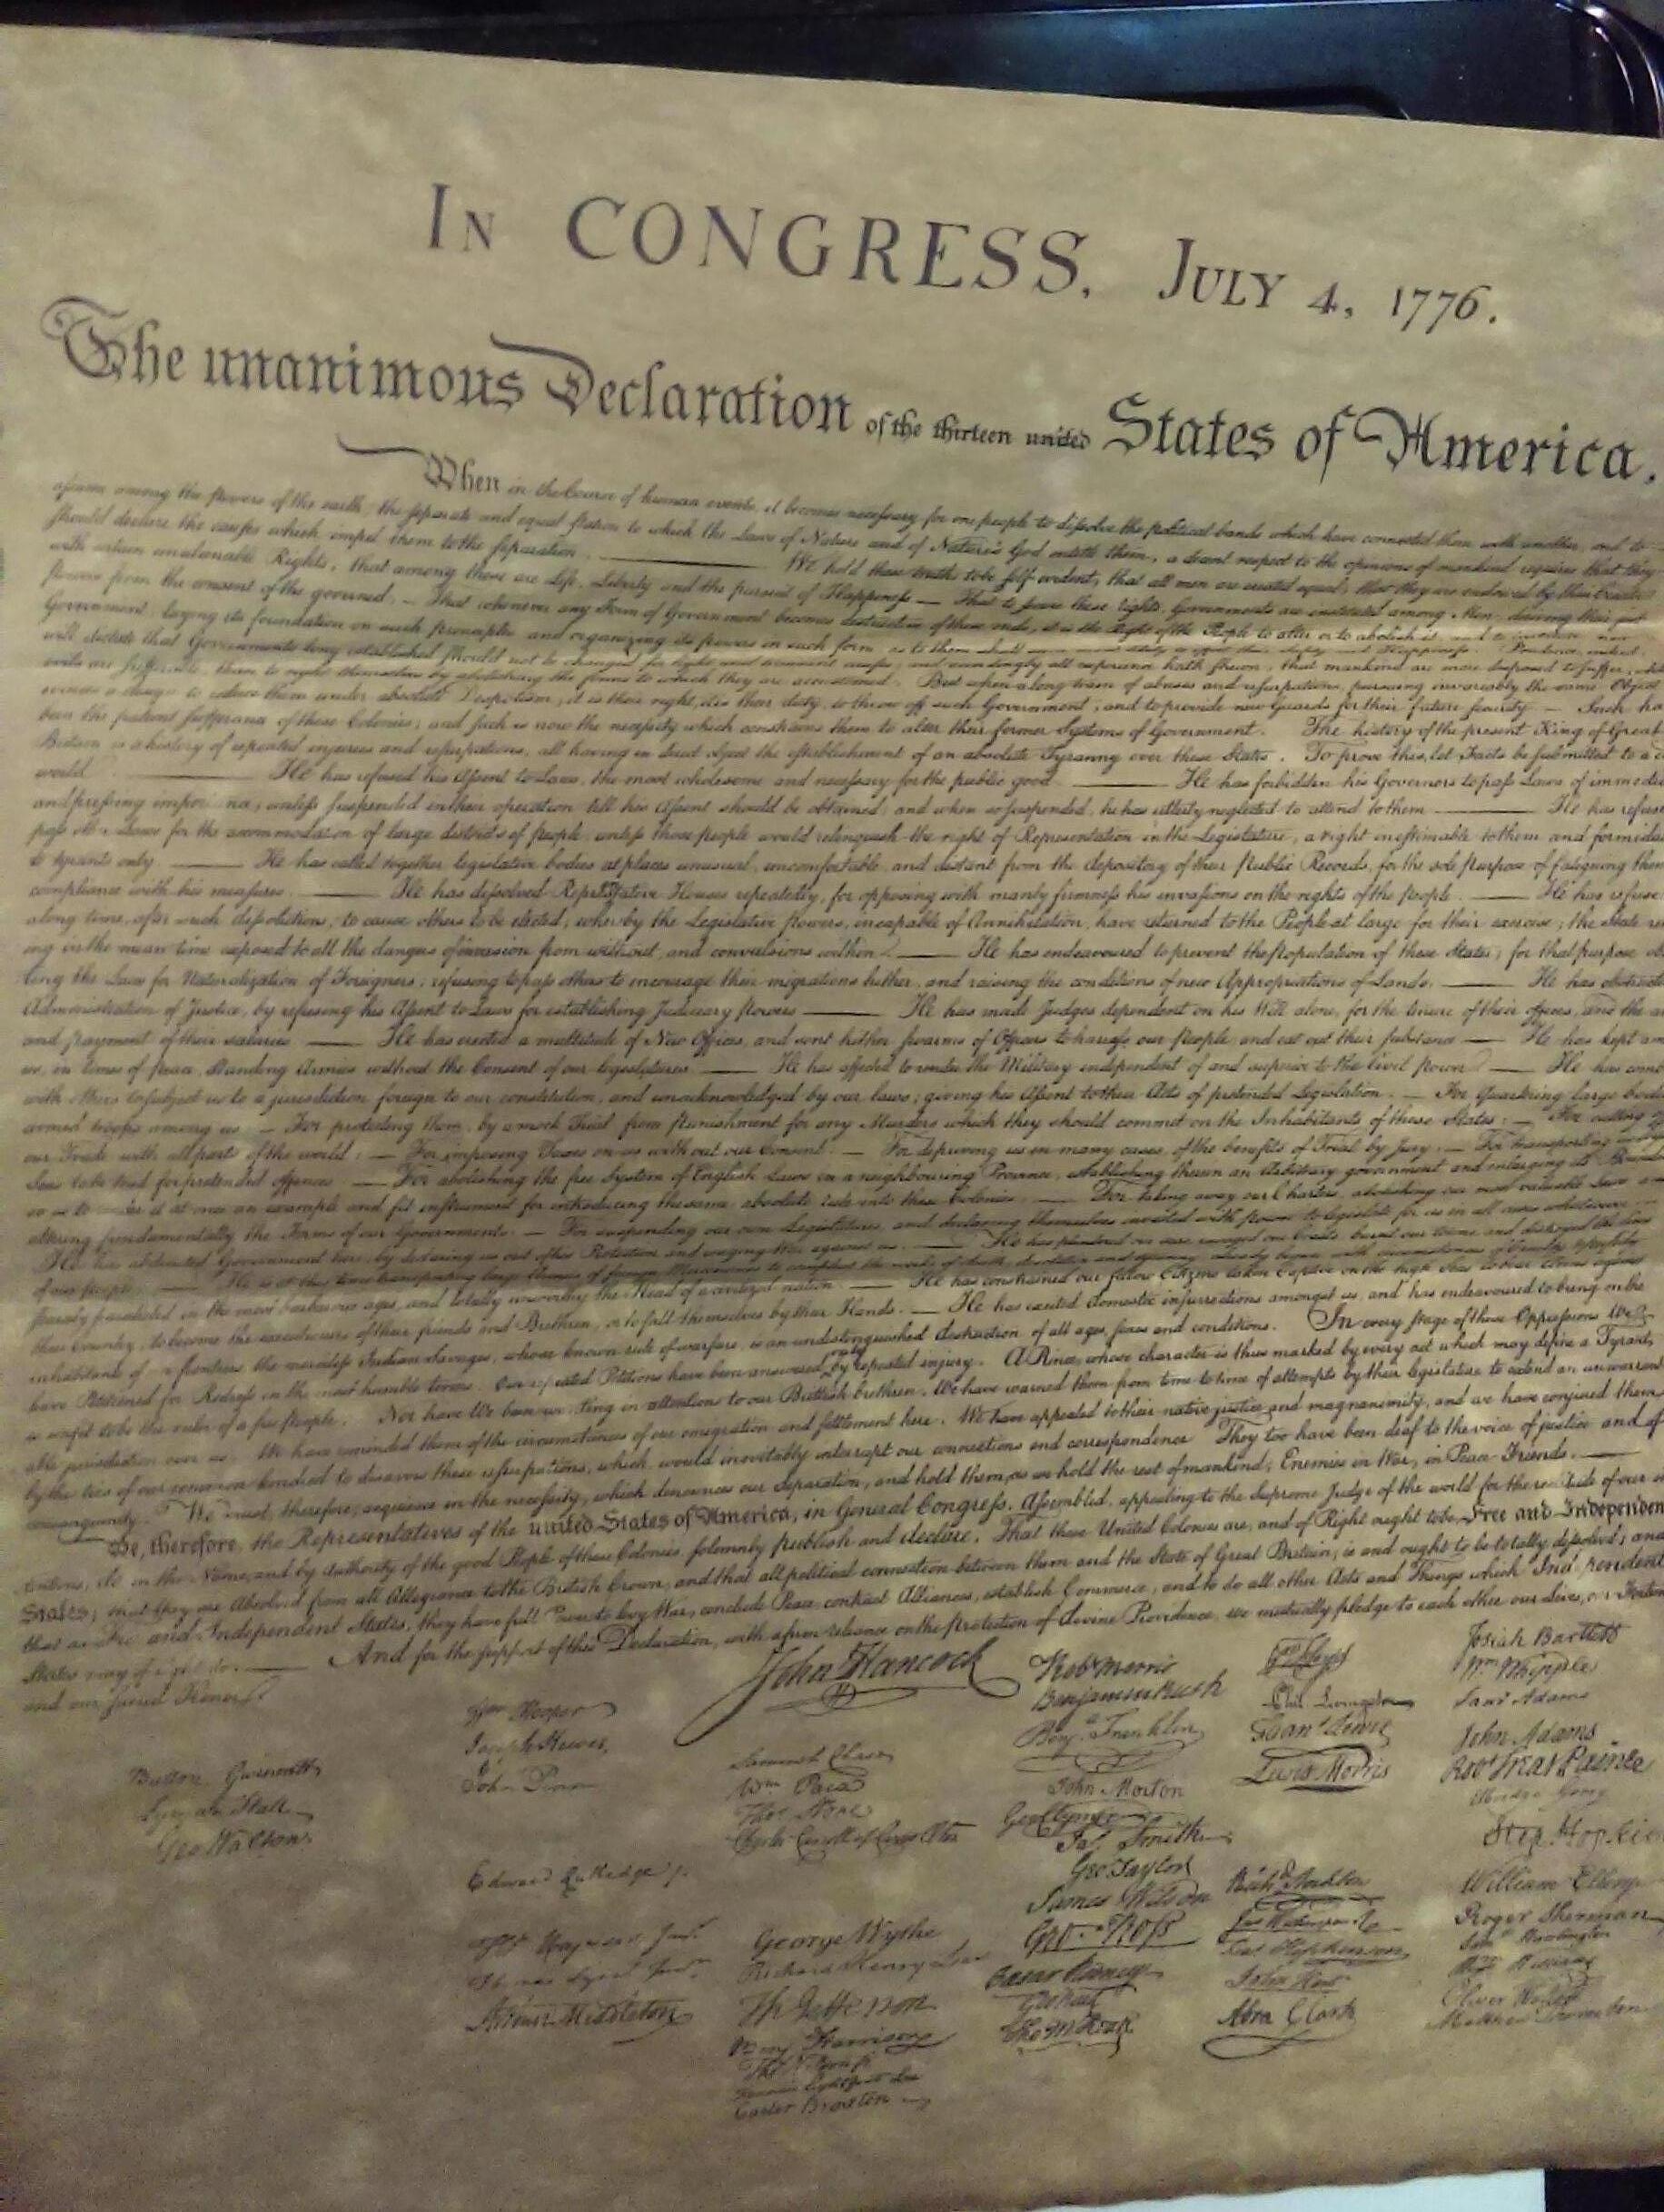 In CONGRESS, July 4, 1776.
The unanimous Declaration of the thirteen united States of America.
When in the Course of human events, it becomes necessary for one people to dissolve the political bands which have connected them with another, and to
among the powers of the earth, the separate and equal station to which the Laws of Nature and of Nature's God entitle them, a decent respect to the opinions of mankind requires that they
should declare the causes which impel them to the separation. We hold these truths to be self-evident, that all men are created equal, that they are endowed by their Creator
with certain unalienable Rights, that among these are Life, Liberty and the pursuit of Happiness — That to secure these rights, Governments are instituted among Men, deriving their just
powers from the consent of the governed, — That whenever any Form of Government becomes destructive of these ends, it is the Right of the People to alter or to abolish it, and to institute new
Government, laying its foundation on such principles and organizing its powers in such form, as to them shall
will dictate that Governments long established should not be changed for light and transient causes; and accordingly all experience hath shewn, that mankind are more disposed to suffer, while
evils are sufferable, than to right themselves by abolishing the forms to which they are accustomed. But when a long train of abuses and usurpations, pursuing invariably the same Object
evinces a design to reduce them under absolute Despotism, it is their right, it is their duty, to throw off such Government, and to provide new Guards for their future security. — Such has
been the patient sufferance of these Colonies; and such is now the necessity which constrains them to alter their former Systems of Government. The history of the present King of Great
Britain is a history of repeated injuries and usurpations, all having in direct object the establishment of an absolute Tyranny over these States. To prove this, let Facts be submitted to a
world. He has refused his Assent to Laws, the most wholesome and necessary for the public good. He has forbidden his Governors to pass Laws of
and pressing unless suspended in their operation till his Assent should be obtained; and when so suspended, he has utterly neglected to attend to them. He has
pass other Laws for the accommodation of large districts of people, unless those people would relinquish the right of Representation in the Legislature, a right inestimable to them and
to tyrants only. He has called together legislative bodies at places unusual, uncomfortable, and distant from the depository of their Public Records, for the sole purpose of fatiguing them
compliance with his measures. He has dissolved Representative Houses repeatedly, for opposing with manly firmness his invasions on the rights of the people. He has
a long time, after such dissolutions, to cause others to be elected; whereby the Legislative powers, incapable of Annihilation, have returned to the People at large for their exercise; the State
ing in the mean time exposed to all the dangers of invasion from without, and convulsions within. He has endeavoured to prevent the Population of these States; for that purpose
ting the Laws for Naturalization of Foreigners; refusing to pass others to encourage their migrations hither, and raising the conditions of new Appropriations of Lands. He has
Administration of Justice, by refusing his Assent to Laws for establishing Judiciary powers. He has made Judges dependent on his Will alone, for the tenure of their offices, and the
and payment of their salaries. He has erected a multitude of New Offices, and sent hither swarms of Officers to harrass our People, and eat out their substance. — He has kept
us, in times of peace, Standing Armies without the Consent of our legislatures. He has affected to render the Military independent of and superior to the Civil power. He has
with others to subject us to a jurisdiction foreign to our constitution, and unacknowledged by our laws; giving his Assent to their Acts of pretended Legislation: — For Quartering large
armed troops among us: — For protecting them, by a mock Trial, from punishment for any Murders which they should commit on the Inhabitants of these States: — For cutting
our Trade with all parts of the world: — For imposing Taxes on us without our Consent: — For depriving us in many cases, of the benefits of Trial by Jury: — For transporting
Seas to be tried for pretended offences — For abolishing the free System of English Laws in a neighbouring Province, establishing therein an Arbitrary government, and enlarging its
so as to render it at once an example and fit instrument for introducing the same absolute rule into these Colonies: — For taking away our Charters, abolishing our most valuable Laws
altering fundamentally the Forms of our Governments: — For suspending our own Legislatures, and declaring themselves invested with power to legislate for us in all cases whatsoever.
He has abdicated Government here, by declaring us out of his Protection and waging War against us. He has plundered our seas, ravaged our Coasts, burnt our towns, and destroyed the lives
of our people. He is at this time transporting large Armies of foreign Mercenaries to compleat the works of death, desolation and tyranny, already begun with circumstances of Cruelty & perfidy
scarcely paralleled in the most barbarous ages, and totally unworthy the Head of a civilized nation. He has constrained our fellow Citizens taken Captive on the high Seas to bear Arms against
their Country, to become the executioners of their friends and Brethren, or to fall themselves by their Hands. — He has excited domestic insurrections amongst us, and has endeavoured to bring on the
inhabitants of frontiers, the merciless Indian Savages, whose known rule of warfare, is an undistinguished destruction of all ages, sexes and conditions. In every stage of these Oppressions We
have Petitioned for Redress in the most humble terms: Our repeated Petitions have been answered by repeated injury. A Prince, whose character is thus marked by every act which may define a Tyrant,
is unfit to be the ruler of a free People. Nor have We been wanting in attentions to our Brittish brethren. We have warned them from time to time of attempts by their legislature to extend an
able jurisdiction over us. We have reminded them of the circumstances of our emigration and settlement here. We have appealed to their native justice and magnanimity, and we have conjured them
by the ties of our common kindred to disavow these usurpations, which, would inevitably interrupt our connections and correspondence. They too have been deaf to the voice of justice and of
consanguinity. We must, therefore, acquiesce in the necessity, which denounces our Separation, and hold them, as we hold the rest of mankind, Enemies in War, in Peace Friends.
We, therefore, the Representatives of the united States of America, in General Congress, Assembled, appealing to the Supreme Judge of the world for the rectitude of our
do, in the Name, and by Authority of the good People of these Colonies, solemnly publish and declare, That these United Colonies are, and of Right ought to be Free and Independent
States; that they are Absolved from all Allegiance to the British Crown, and that all political connection between them and the State of Great Britain, is and ought to be totally dissolved; and
that as Free and Independent States, they have full Power to levy War, conclude Peace, contract Alliances, establish Commerce, and to do all other Acts and Things which Independent
States may of right do. And for the support of this Declaration, with a firm reliance on the protection of divine Providence, we mutually pledge to each other our Lives, our
and our sacred Honor.
John Hancock
Button Gwinnett
Lyman Hall
Geo Walton.
Wm Hooper
Joseph Hewes,
John Penn
Edward Rutledge
Thos Heyward Junr.
Thomas Lynch Junr.
Arthur Middleton
Samuel Chase
Wm Paca
Thos Stone
Charles Carroll of Carrollton
George Wythe
Richard Henry Lee
Th Jefferson
Benj Harrison
Thos Nelson jr
Francis Lightfoot Lee
Carter Braxton
Robt Morris
Benjamin Rush
Benj. Franklin
John Morton
Geo Clymer
Jas. Smith
Geo. Taylor
James Wilson
Geo. Ross
Caesar Rodney
Geo Read
Tho M:Kean
Wm Floyd
Phil. Livingston
Frans. Lewis
Lewis Morris
Richd. Stockton
Jno Witherspoon
Fras. Hopkinson
John Hart
Abra Clark
Josiah Bartlett
Wm Whipple
Saml Adams
John Adams
Robt Treat Paine
Elbridge Gerry
Step. Hopkins
William Ellery
Roger Sherman
Saml Huntington
Wm Williams
Oliver Wolcott
Matthew Thornton